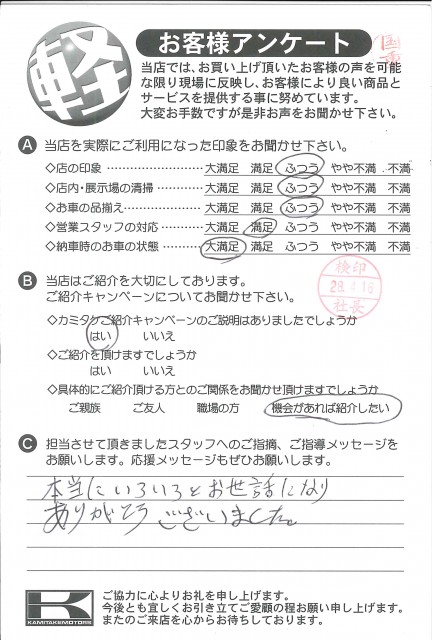 軽
お客様アンケート
当店では、お買い上げ頂いたお客様の声を可能
な限り現場に反映し、お客様により良い商品と
サービスを提供する事に努めています。
大変お手数ですが是非お声をお聞かせ下さい。
A 当店を実際にご利用になった印象をお聞かせ下さい。
◇店の印象 ⋯⋯⋯⋯⋯⋯ 大満足 満足 ふつう やや不満 不満
◇店内・展示場の清掃 ⋯⋯⋯ 大満足 満足 ふつう やや不満 不満
◇お車の品揃え⋯⋯⋯⋯⋯ 大満足 満足 ふつう やや不満 不満
◇営業スタッフの対応 ⋯⋯⋯ 大満足 満足 ふつう やや不満 不満
◇納車時のお車の状態 ⋯⋯⋯ 大満足 満足 ふつう やや不満 不満
B 当店はご紹介を大切にしております。
ご紹介キャンペーンについてお聞かせ下さい。
検印
28.4.16
社長
◇カミタケご紹介キャンペーンのご説明はありましたでしょうか
はい いいえ
◇ご紹介を頂けますでしょうか
はい いいえ
◇具体的にご紹介頂ける方とのご関係をお聞かせ頂けますでしょうか
ご親族 ご友人 職場の方 機会があれば紹介したい
C 担当させて頂きましたスタッフへのご指摘、ご指導メッセージを
お願いします。応援メッセージもぜひお願いします。
本当にいろいろとお世話になり
ありがとうございました。
K
KAMITAKEMOTORS
ご協力に心よりお礼を申し上げます。
今後とも宜しくお引き立てご愛顧の程お願い申し上げます。
またのご来店を心からお待ちしております。